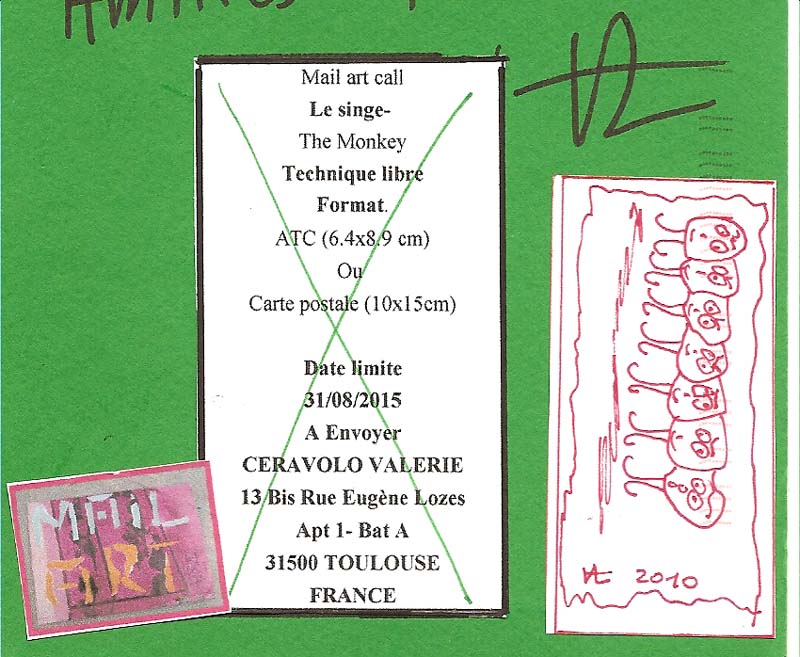 Mail art call
Le singe-
The Monkey
Technique libre
Format.
ATC (6.4x8.9 cm)
Ou
Carte postale (10x15cm)
Date limite
31/08/2015
A Envoyer
CERAVOLO VALERIE
13 Bis Rue Eugène Lozes
Apt 1- Bat A
31500 TOULOUSE
FRANCE
MAIL
ART
2010